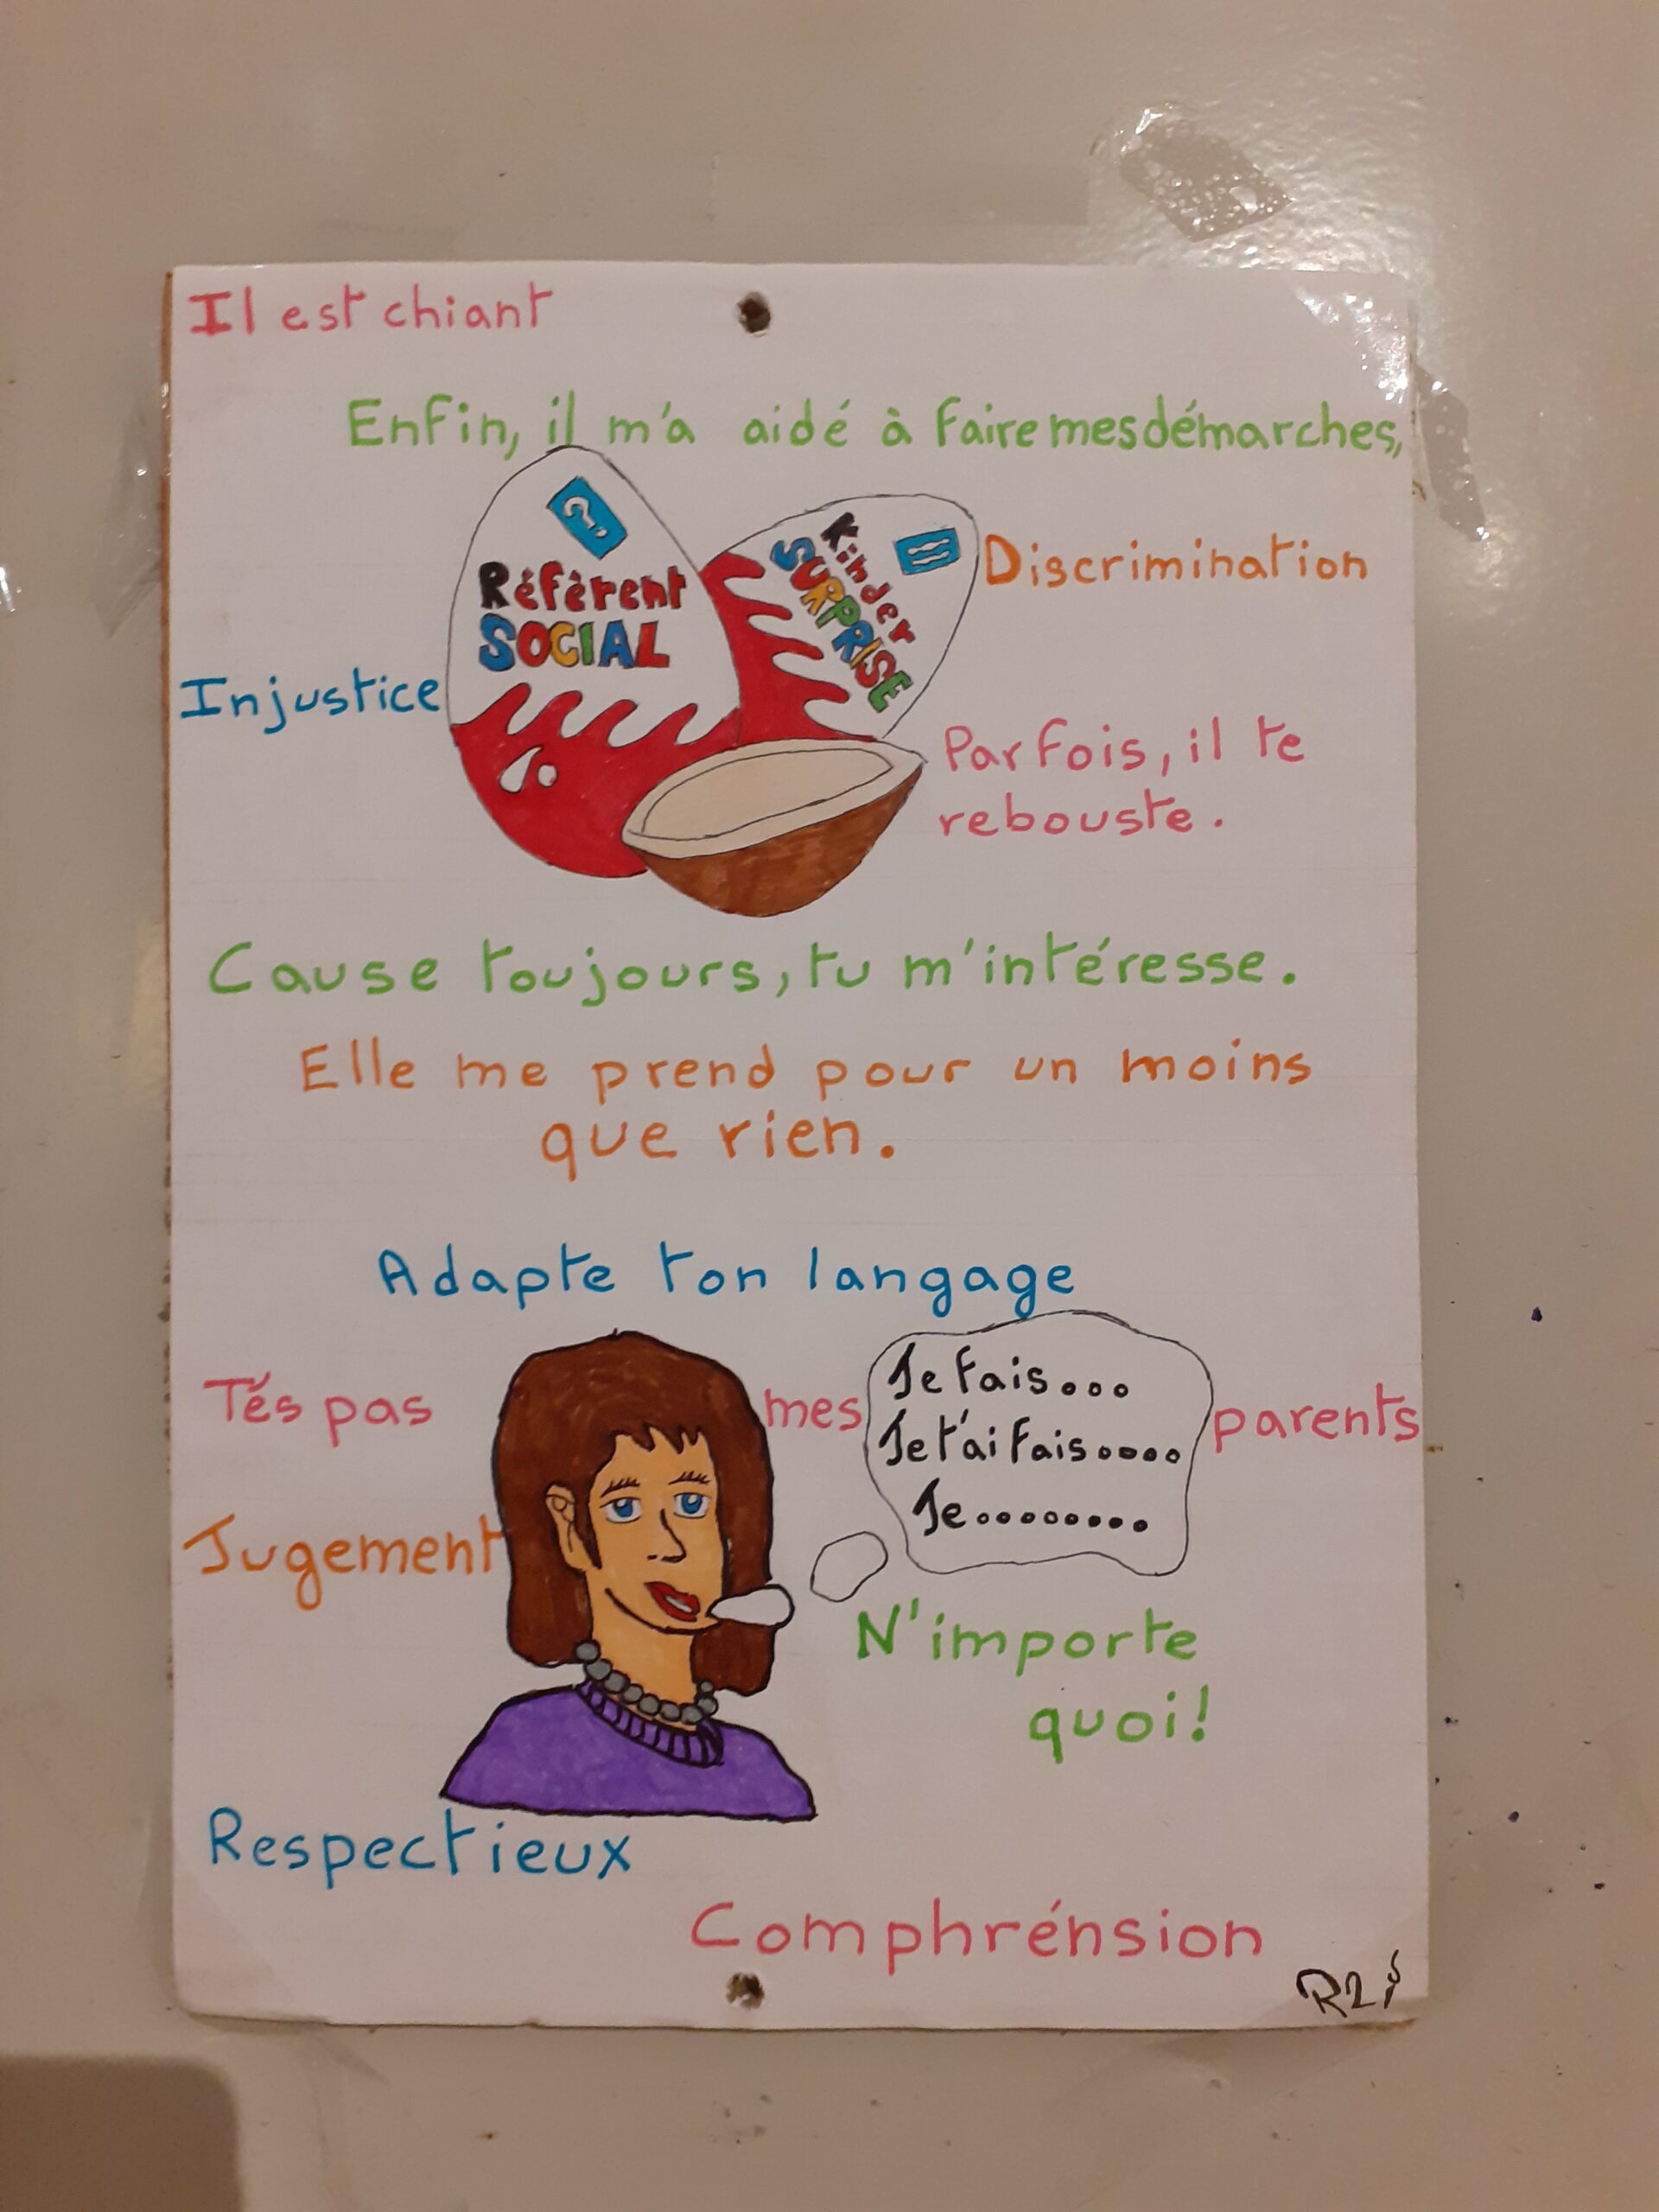 Il est chiant
Enfin, il m'a aidé à faire mes démarches,
Référent
SOCIAL
Kinder
SURPRISE
Discrimination
Injustice
Parfois, il te
rebouste.
Cause toujours, tu m'intéresse.
Elle me prend pour un moins
que rien.
Adapte ton langage
Tés pas mes parents
Je fais...
Je t'ai fais....
Je........
Jugement
N'importe
quoi!
Respectieux
Comphrénsion